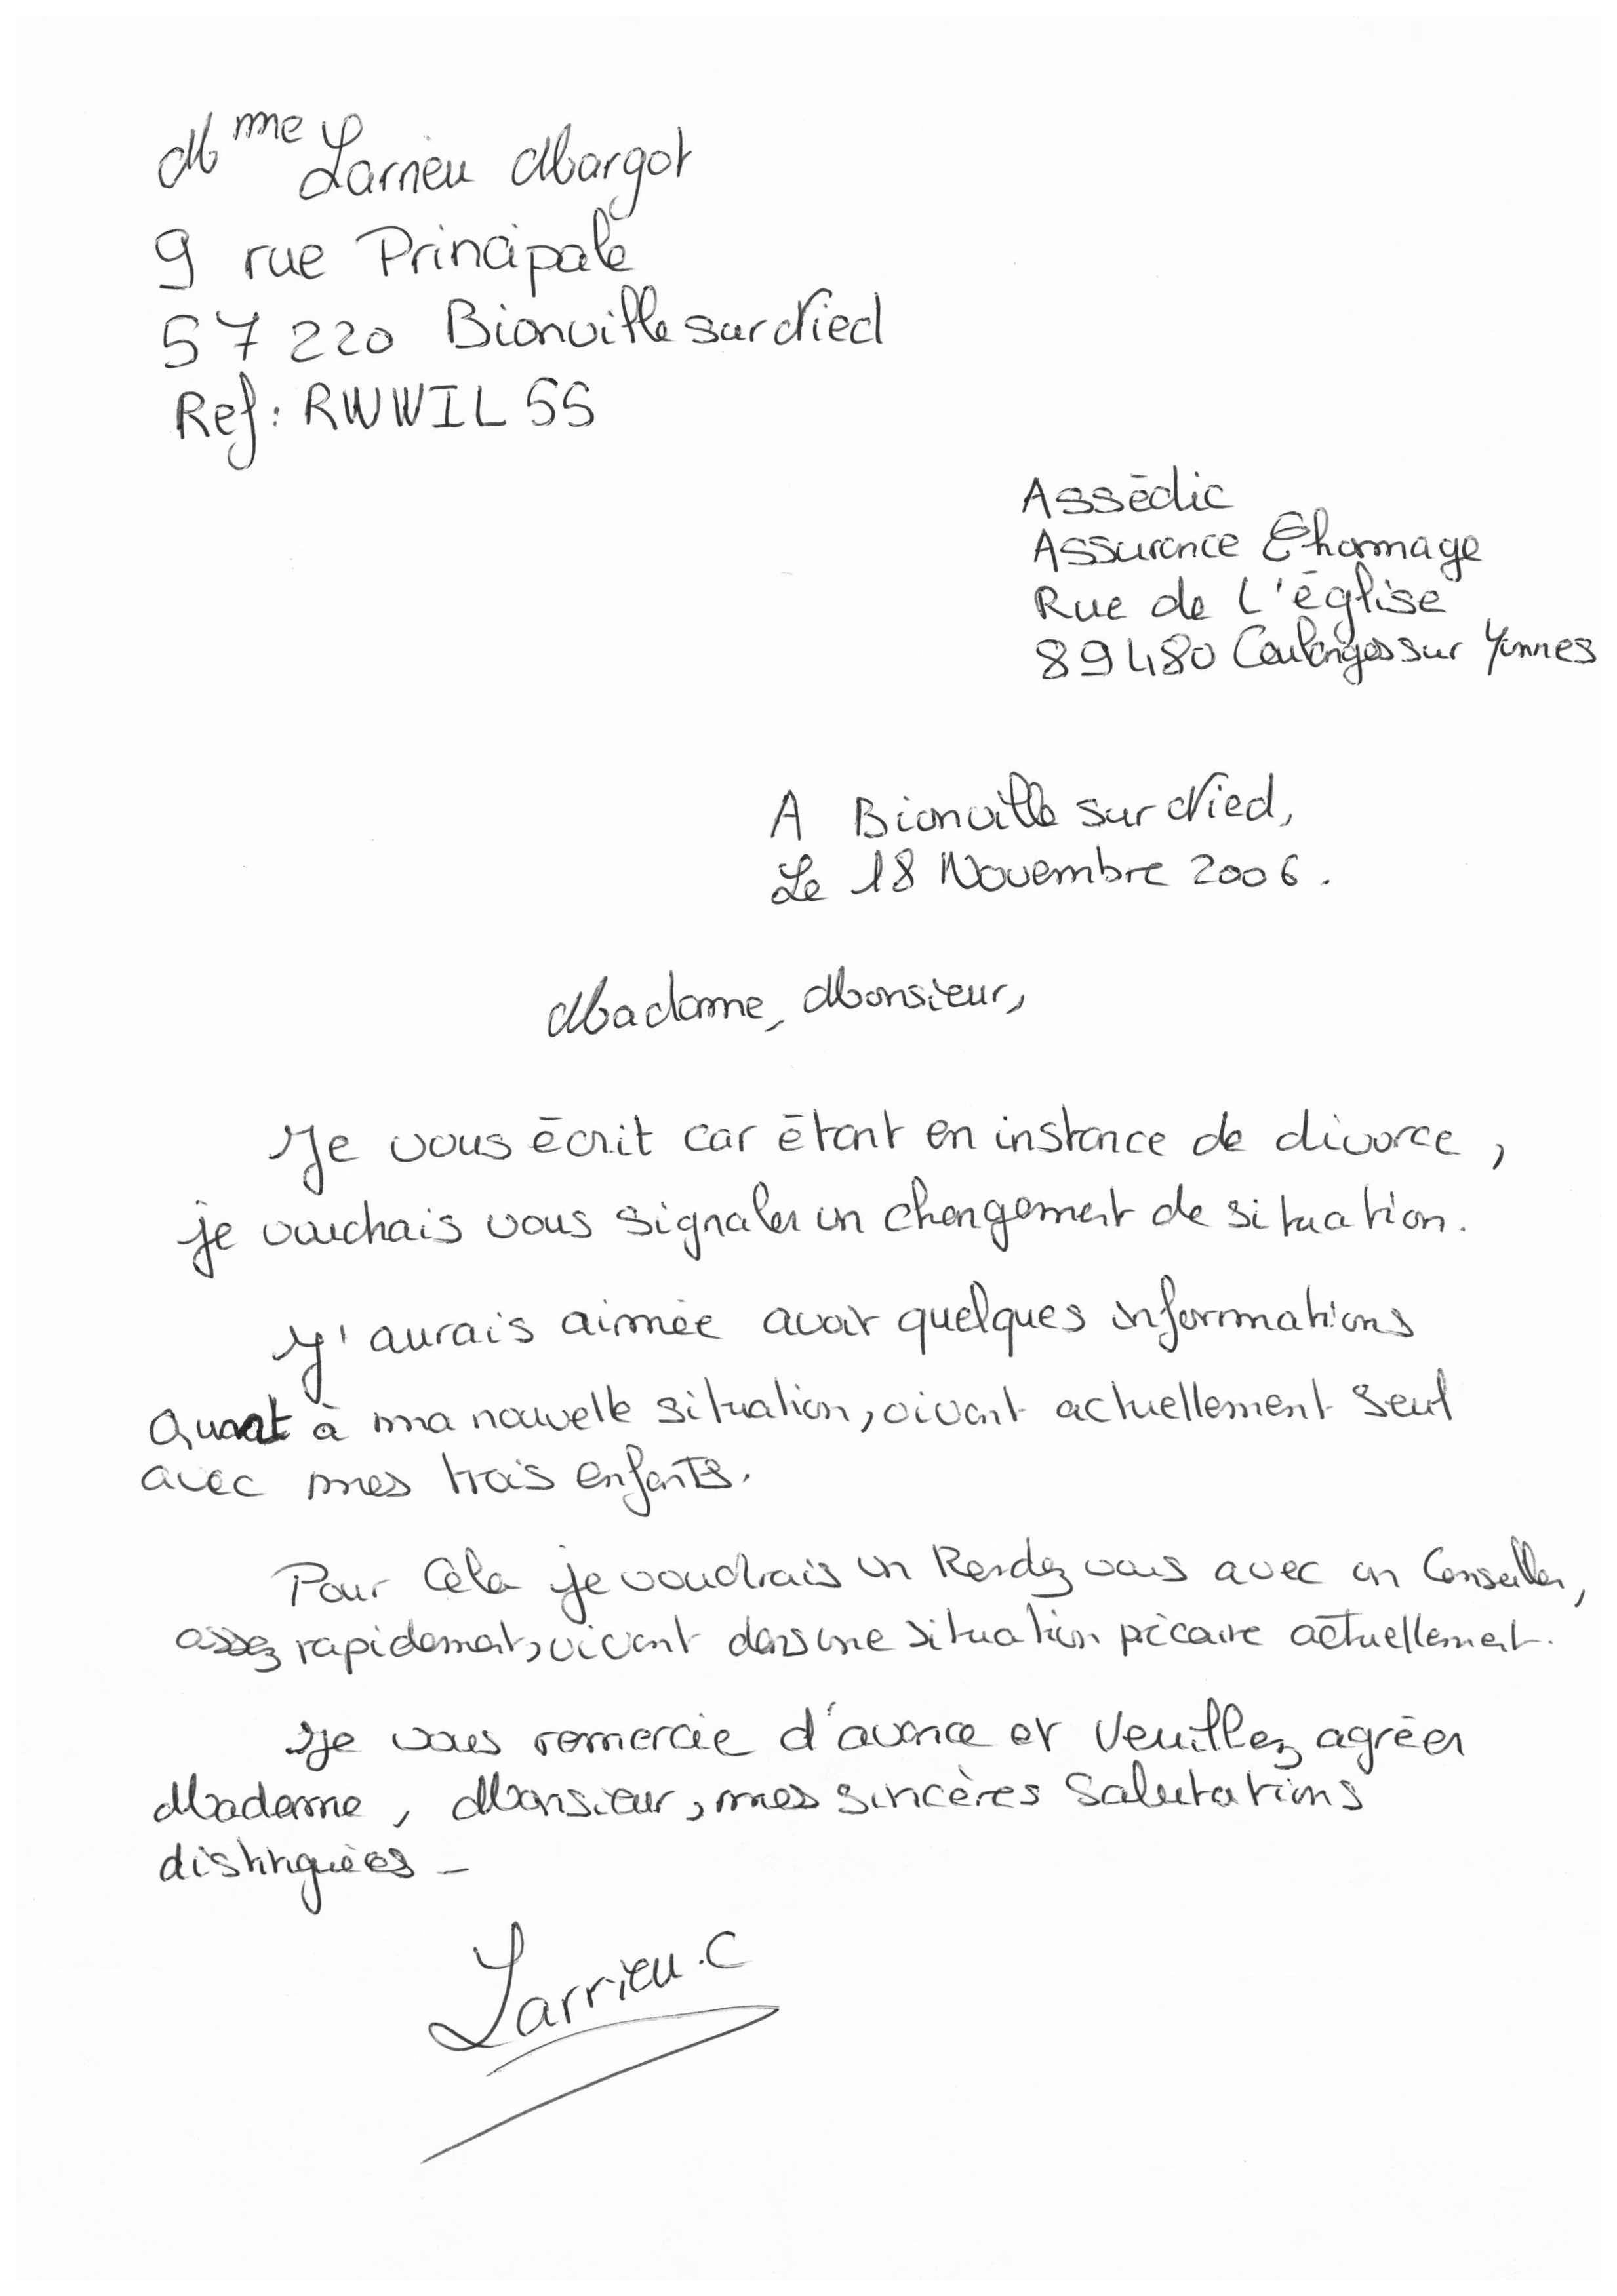 Mme Larrieu Margot
9 rue Principale
57220 Bionville sur Nied
Ref: RWWIL55
Assédic
Assurance Chomage
Rue de L'église
89480 Coulanges sur Yonnes
A Bionville sur Nied,
Le 18 Novembre 2006.
Madame, Monsieur,
Je vous écrit car étant en instance de divorce,
je voudrais vous signaler un changement de situation.
J'aurais aimée avoir quelques informations
Quant à ma nouvelle situation, vivant actuellement seul
avec mes trois enfants.
Pour Cela je voudrais un Rendez vous avec un Conseiller,
assez rapidement, vivant dans une situation pécaire actuellement.
Je vous remercie d'avance et Veuillez agréer
Madame, Monsieur, mes sincères Salutations
distinguées -
Larrieu.C